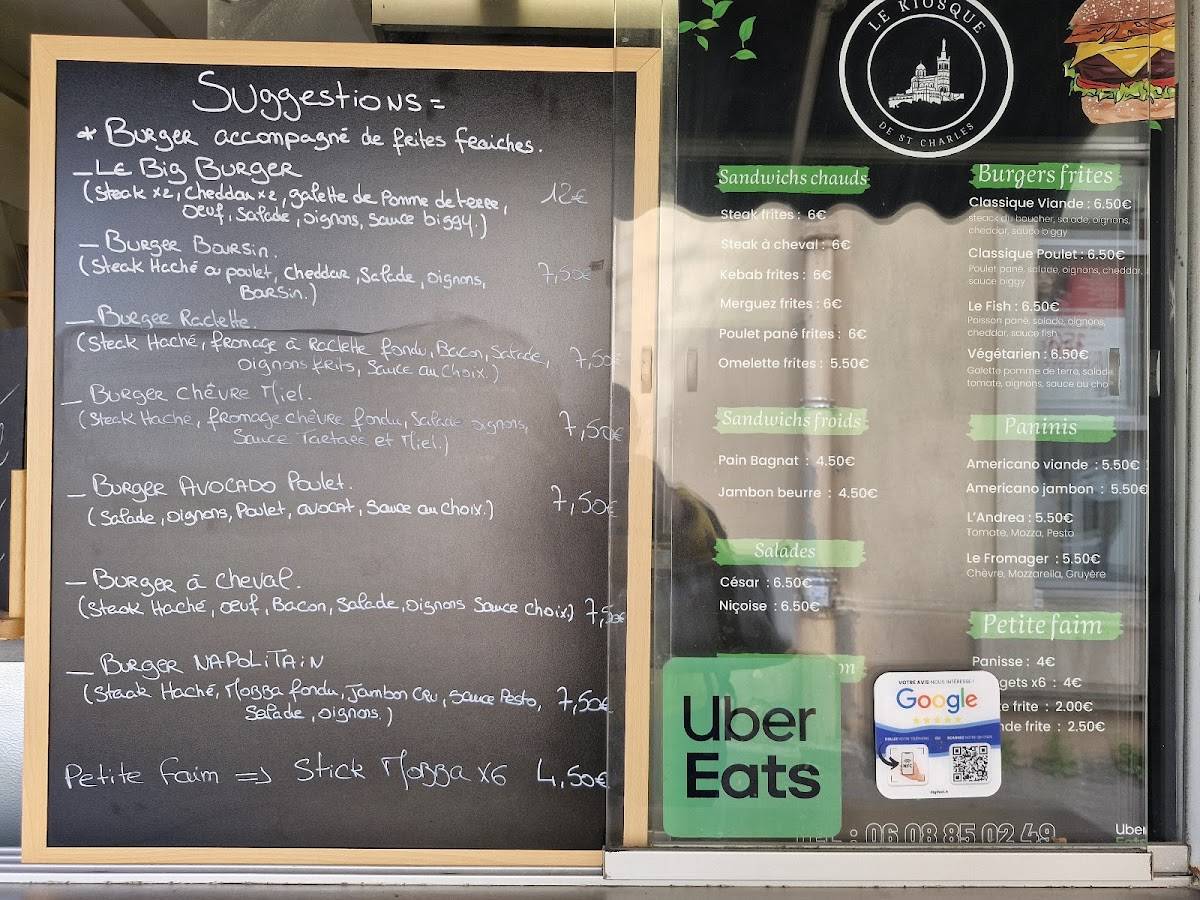 Suggestions =
* Burger accompagné de frites fraiches.
_ Le Big Burger
(Steak x2, Cheddar x2, galette de Pomme de terre, 12€
Oeuf, Salade, oignons, Sauce biggy.)
_ Burger Boursin.
(Steak Haché ou poulet, Cheddar, Salade, oignons, 7,50€
Boursin.)
_ Burger Raclette.
(Steak Haché, fromage à Raclette fondu, Bacon, Salade, 7,50€
oignons frits, Sauce au choix.)
_ Burger Chêvre Miel.
(Steak Haché, fromage chêvre fondu, Salade oignons, 7,50€
Sauce Tartare et Miel.)
_ Burger Avocado Poulet. 7,50€
(Salade, oignons, Poulet, avocat, Sauce au choix.)
_ Burger à Cheval.
(Steak Haché, oeuf, Bacon, Salade, oignons Sauce choix) 7,50€
_ Burger NAPOLiTAiN
(Steak Haché, Mozza fondu, Jambon Cru, Sauce Pesto, 7,50€
Salade, oignons.)
Petite faim => Stick Mozza x6 4,50€
LE KIOSQUE
DE ST CHARLES
Sandwichs chauds
Steak frites : 6€
Steak à cheval : 6€
Kebab frites : 6€
Merguez frites : 6€
Poulet pané frites : 6€
Omelette frites : 5.50€
Sandwichs froids
Pain Bagnat : 4.50€
Jambon beurre : 4.50€
Salades
César : 6.50€
Niçoise : 6.50€
on
Burgers frites
Classique Viande : 6.50€
steack du boucher, salade, oignons,
cheddar, sauce biggy
Classique Poulet : 6.50€
Poulet pané, salade, oignons, cheddar,
sauce biggy
Le Fish : 6.50€
Poisson pané, salade, oignons,
cheddar, sauce fish
Végétarien : 6.50€
Galette pomme de terre, salade
tomate, oignons, sauce au cho
Paninis
Americano viande : 5.50€
Americano jambon : 5.50€
L'Andrea : 5.50€
Tomate, Mozza, Pesto
Le Fromager : 5.50€
Chèvre, Mozzarella, Gruyère
Petite faim
Panisse : 4€
gets x6 : 4€
te frite : 2.00€
nde frite : 2.50€
Uber
Eats
VOTRE AVIS NOUS INTÉRESSE !
Google
TEL : 06 08 85 02 49
Uber
Eats